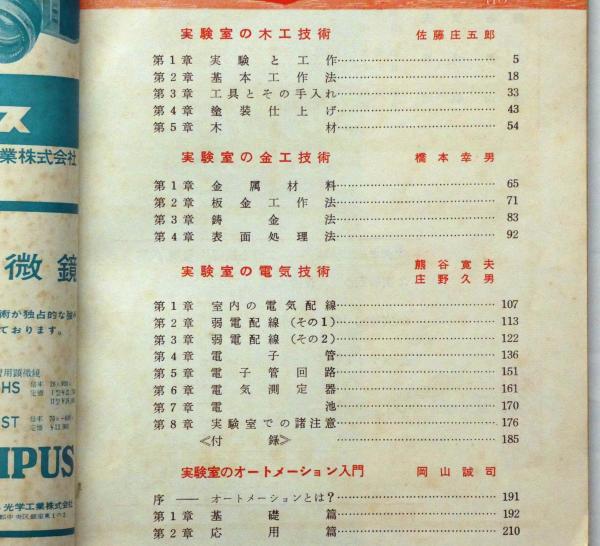 実験室の木工技術 佐藤庄五郎
第1章 実験と工作 5
第2章 基本工作法 18
第3章 工具とその手入れ 33
第4章 塗装仕上げ 43
第5章 木材 54
実験室の金工技術 橋本幸男
第1章 金属材料 65
第2章 板金工作法 71
第3章 鋳金法 83
第4章 表面処理法 92
実験室の電気技術 熊谷寛夫
庄野久男
第1章 室内の電気配線 107
第2章 弱電配線(その1) 113
第3章 弱電配線(その2) 122
第4章 電子管 136
第5章 電子管回路 151
第6章 電気測定器 161
第7章 電池 170
第8章 実験室での諸注意 176
<付録> 185
実験室のオートメーション入門 岡山誠司
序 ── オートメーションとは? 191
第1章 基礎篇 192
第2章 応用篇 210
ス
業株式会社
微鏡
術が独占的な
ております。
習用顕微鏡
HS 倍率
定価
ST 倍率
定価
MPUS
光学工業株式会社